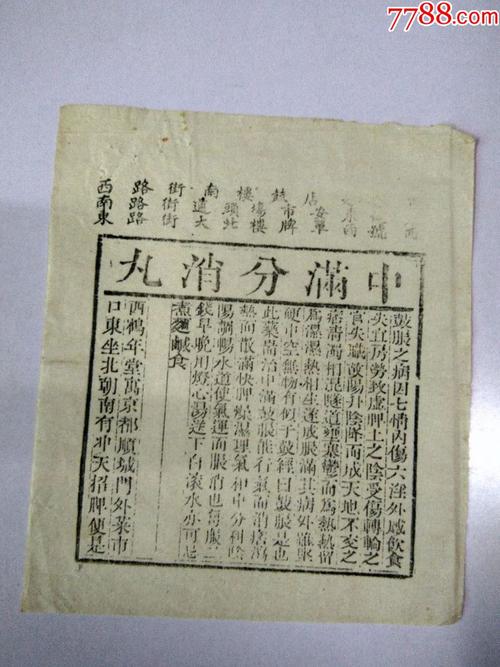 7788.com
店錢樓南街路西
安市場頭道街路南
東單牌樓北大街路東
中滿分消丸
鼓脹之病因七情內傷六淫外感飲食
失宜房勞致虛脾土之陰受傷轉輸之
官失職故陽升陰降而成天地不交之
痞清濁相混隧道壅塞鬱而為熱熱留
為濕濕熱相生遂成脹滿其病外雖堅
硬中空無物有似于鼓經曰鼓脹是也
此藥耑治中滿鼓脹能行氣而消痞清
熱而散滿快脾燥濕理氣和中分利陰
陽調暢水道使氣運而脹消也每服二
錢早晚用燈心湯送下白滾水亦可忌
煮麵鹹食
西鶴年堂寓京都順城門外菜市
口東坐北朝南有沖天招牌便是